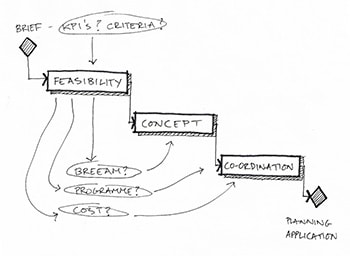 BRIEF - KPI'S? CRITERIA?
FEASIBILITY
CONCEPT
BREEAM?
CO-ORDINATION
PROGRAMME?
COST?
PLANNING
APPLICATION